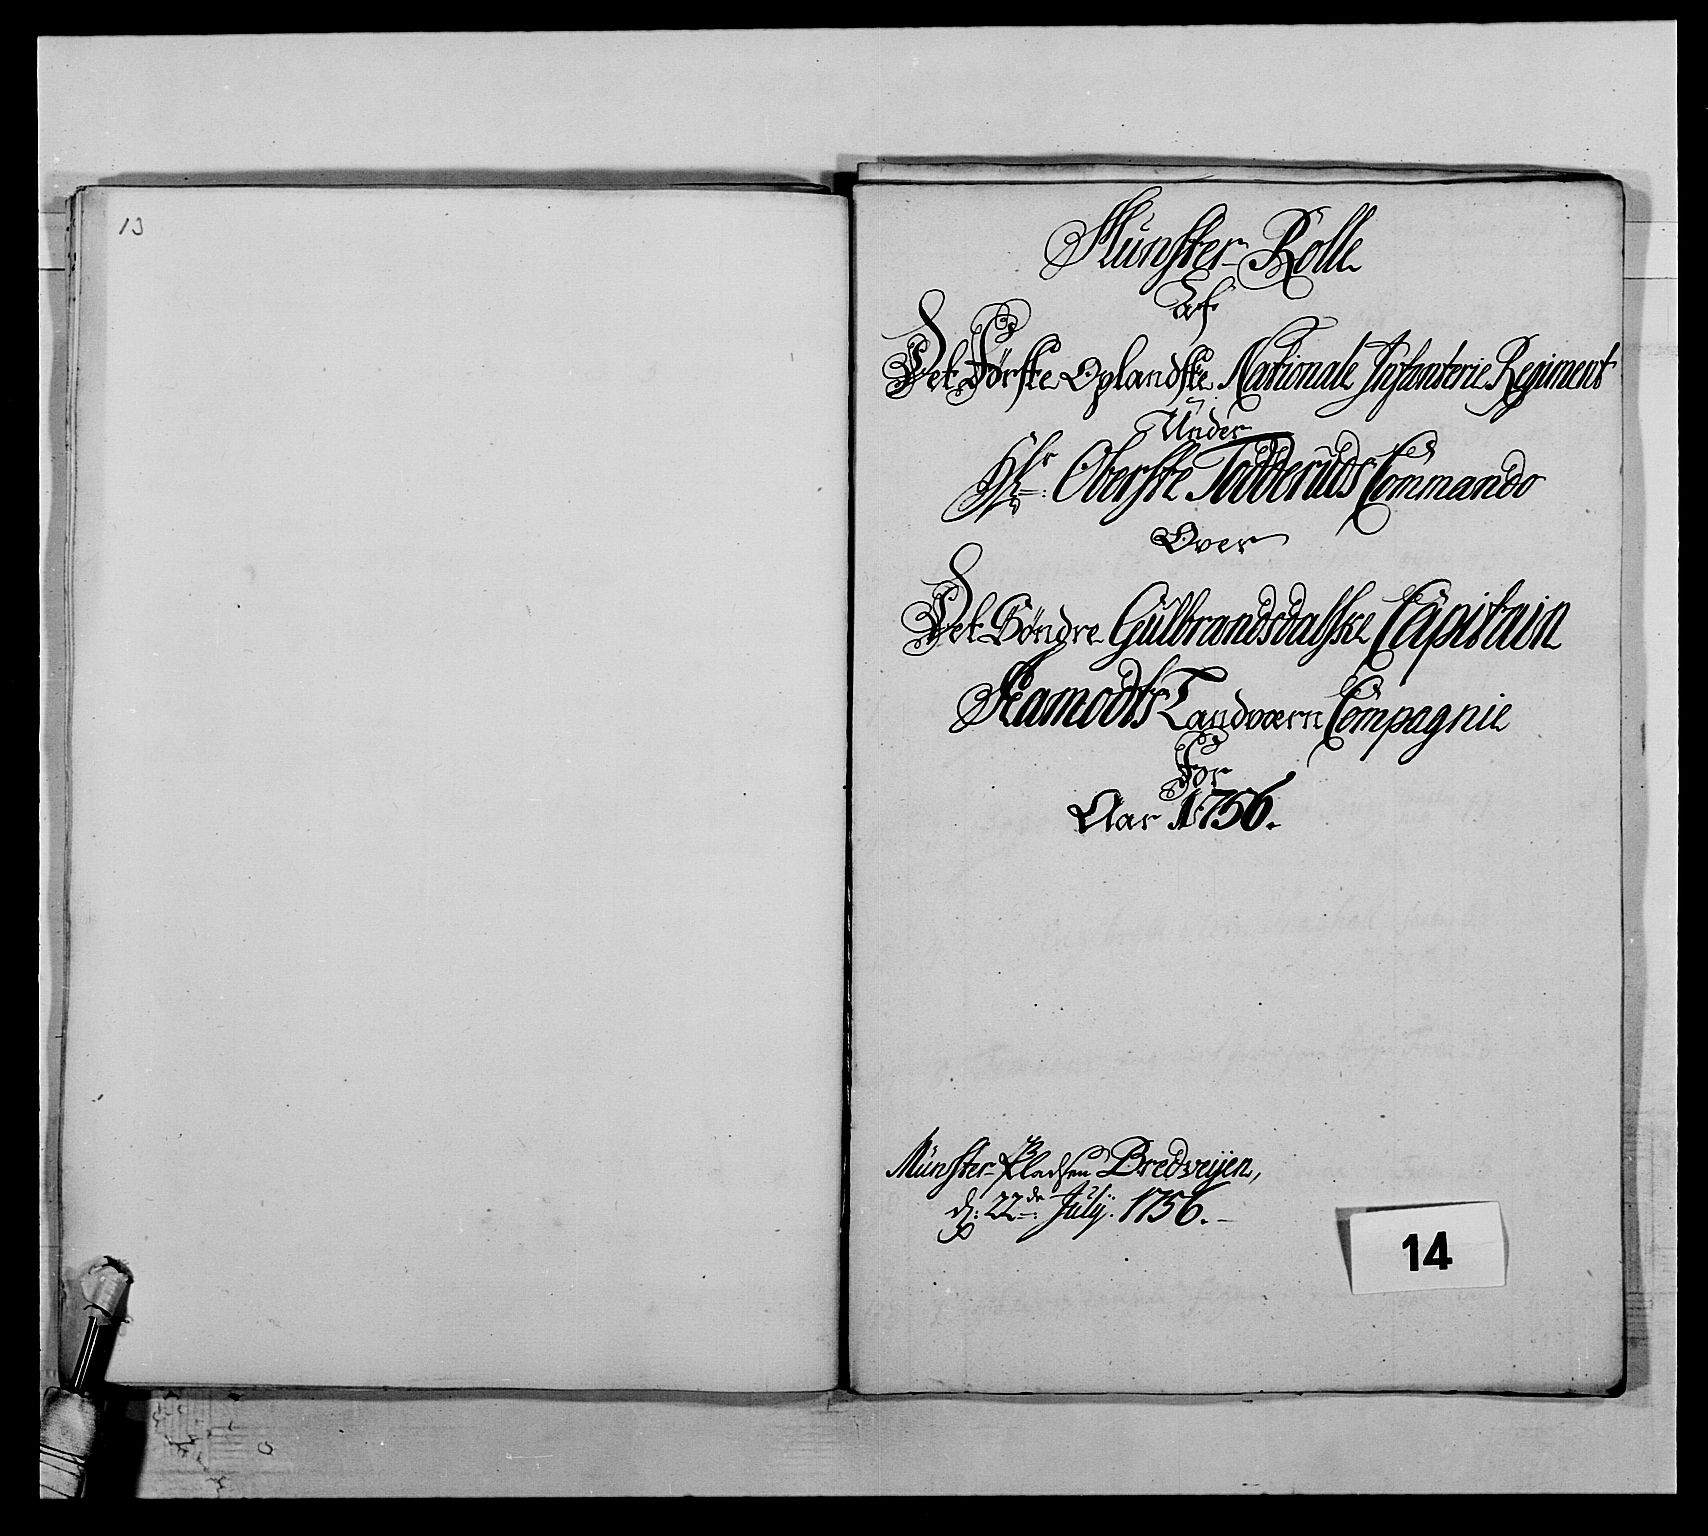 13
Münster-Rolle
Af
Det Første Oplandske Nationale Infanterie Regiment
Ünder
Hr: Oberste Todderüds Commando
Over
Det Söndre Gülbrandsdalske Capitain
Landværn Compagnie
For
Aar 1756.
Münster-Pladsen Bredvejen,
d: 22de: Julÿ. 1756.
14